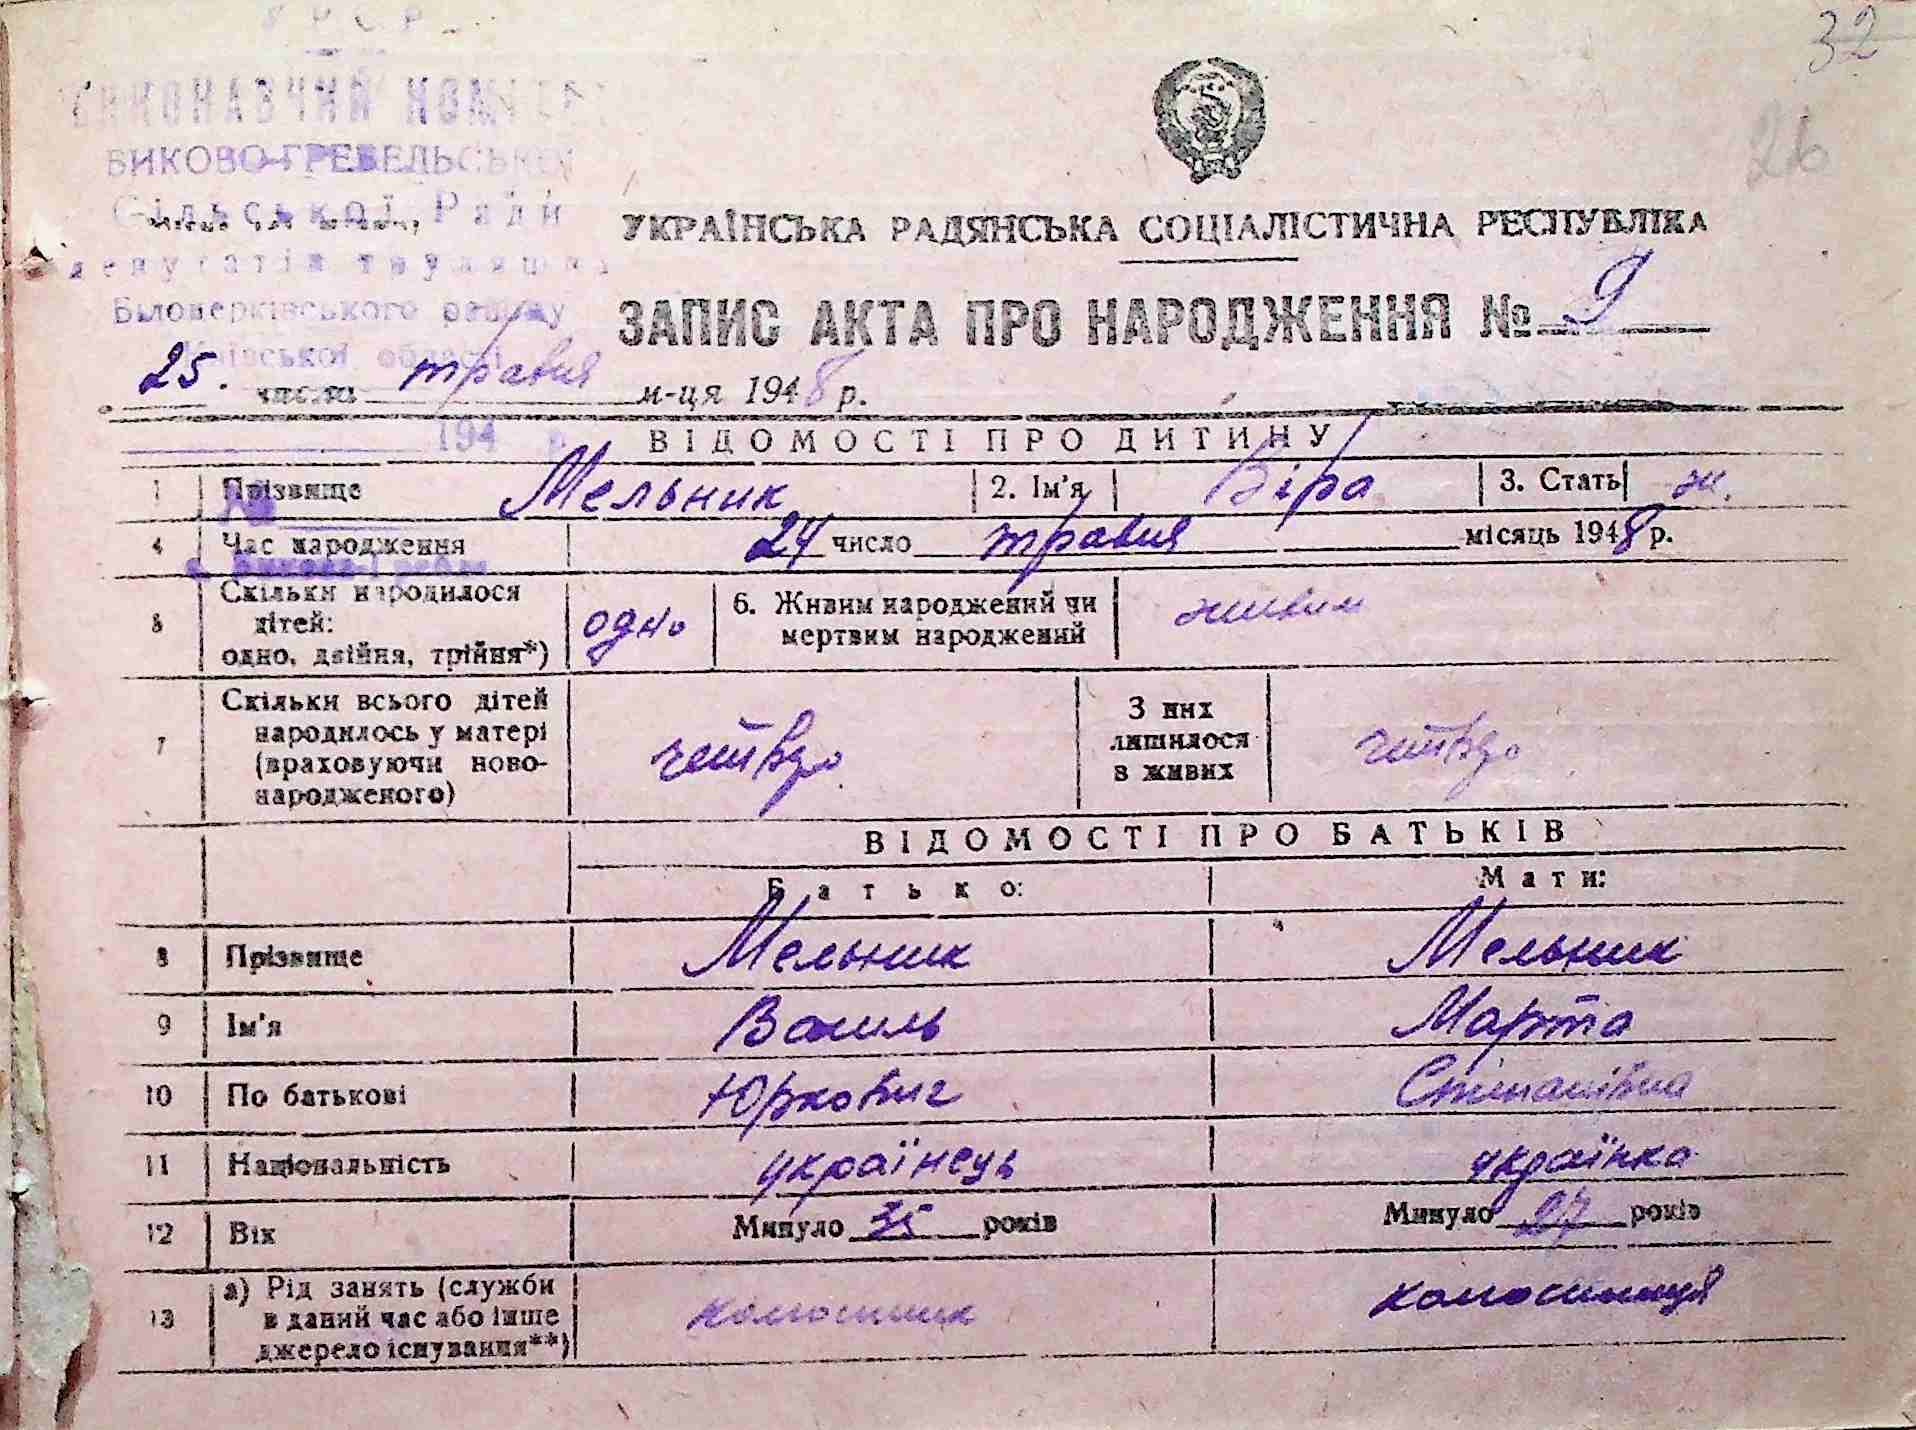 32
26
У Р С Р
ВИКОНАВЧИЙ КОМІТЕТ
БИКОВО-ГРЕБЕЛЬСЬКОЇ
Сільської Ради
депутатів трудящих
Білоцерківського району
Київської області
194 р.
№
с. Бикова-Гребля
УКРАЇНСЬКА РАДЯНСЬКА СОЦІАЛІСТИЧНА РЕСПУБЛІКА
ЗАПИС АКТА ПРО НАРОДЖЕННЯ № 9
25. числа травня м-ця 1948 р.
ВІДОМОСТІ ПРО ДИТИНУ
1 Прізвище Мельник 2. Ім'я Віра 3. Стать ж.
4 Час народження 24 число травня місяць 1948 р.
5 Скільки народилося
дітей:
одно, двійня, трійня*) одно 6. Живим народжений чи
мертвим народжений живим
7 Скільки всього дітей
народилось у матері
(враховуючи ново-
народженого) четверо З них
лишилося
в живих четверо
ВІДОМОСТІ ПРО БАТЬКІВ
Батько: Мати:
8 Прізвище Мельник Мельник
9 Ім'я Василь Марта
10 По батькові Юркович Степанівна
11 Національність українець українка
12 Вік Минуло 35 років Минуло 27 років
13 а) Рід занять (служби
в даний час або інше
джерело існування**) колгоспник колгоспниця